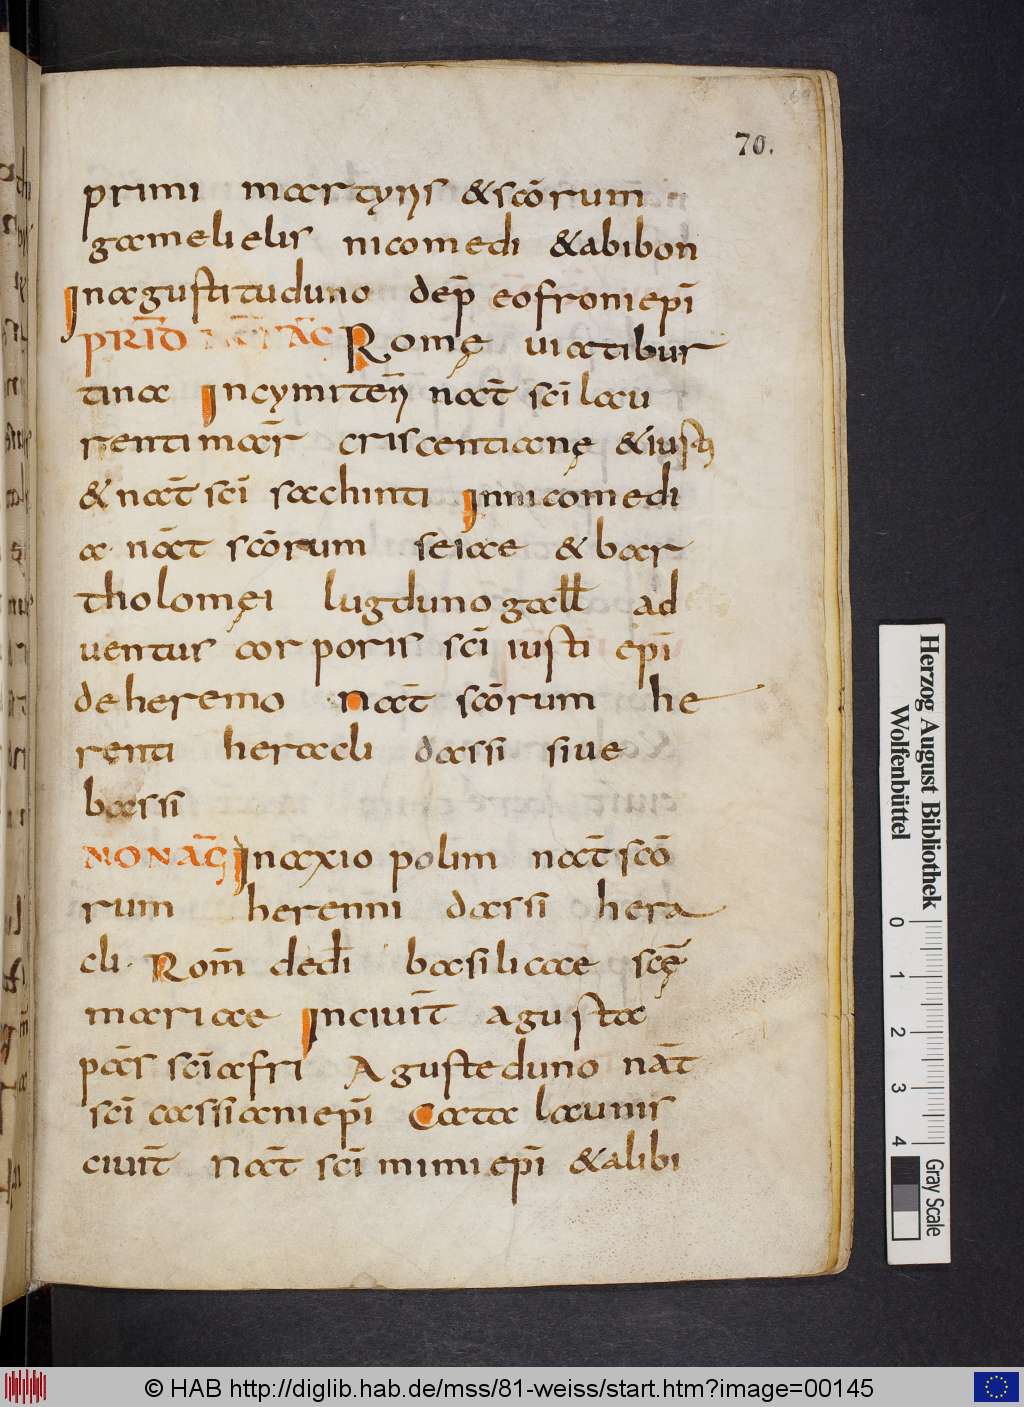 70.
primi martyris & scōrum
gamelielis nicomedi & abibon
Inagustituduno dep̄ eofroni epī
PRID NŌN AG̅ Romę via tibur
tina In cymiteri nat̄ scī lau
renti mar̄ criscentianę & iusti
& nat̄ scī iachinti In nicomedi
a nat̄ scōrum seiae & bar
tholomęi lugduno gall̄ ad
ventus corporis scī iusti epī
de heremo Nat̄ scōrum he
renti heracli dassi sive
bassi
NON AG̅ In axiopolim nat̄ scō
rum herenni dassi hera
cli. Rom̄ dedī basilicae scę̄
mariae In civit̄ agusta
pas̄ scī afri Agusteduno nat̄
scī cassiani epī Catalaunis
civit̄ Nat̄ scī mimi epī & alibi
Herzog August Bibliothek
Wolfenbüttel
0 1 2 3 4
Gray Scale
© HAB http://diglib.hab.de/mss/81-weiss/start.htm?image=00145